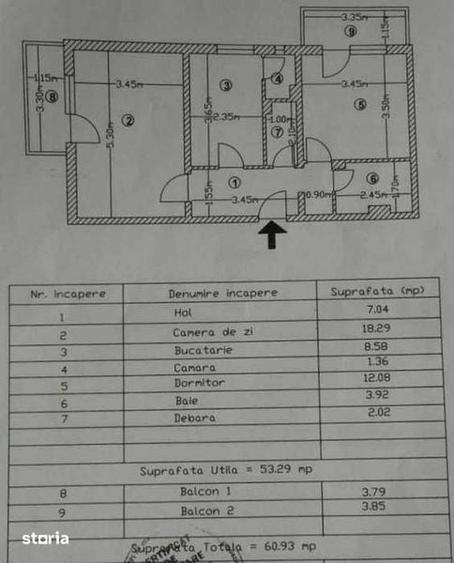 3.35m
9
1.15m
1.15m
3.30m
8
3.45m
5.30m
2
3
3.65m
2.35m
4
1.00m
7
2.10m
3.45m
5
3.50m
1
1.55m
3.45m
0.90m
6
2.45m
1.70m
Nr. incapere Denumire incapere Suprafata (mp)
1 Hol 7.04
2 Camera de zi 18.29
3 Bucatarie 8.58
4 Camara 1.36
5 Dormitor 12.08
6 Baie 3.92
7 Debara 2.02
Suprafata Utila = 53.29 mp
8 Balcon 1 3.79
9 Balcon 2 3.85
Suprafata Totala = 60.93 mp
storia